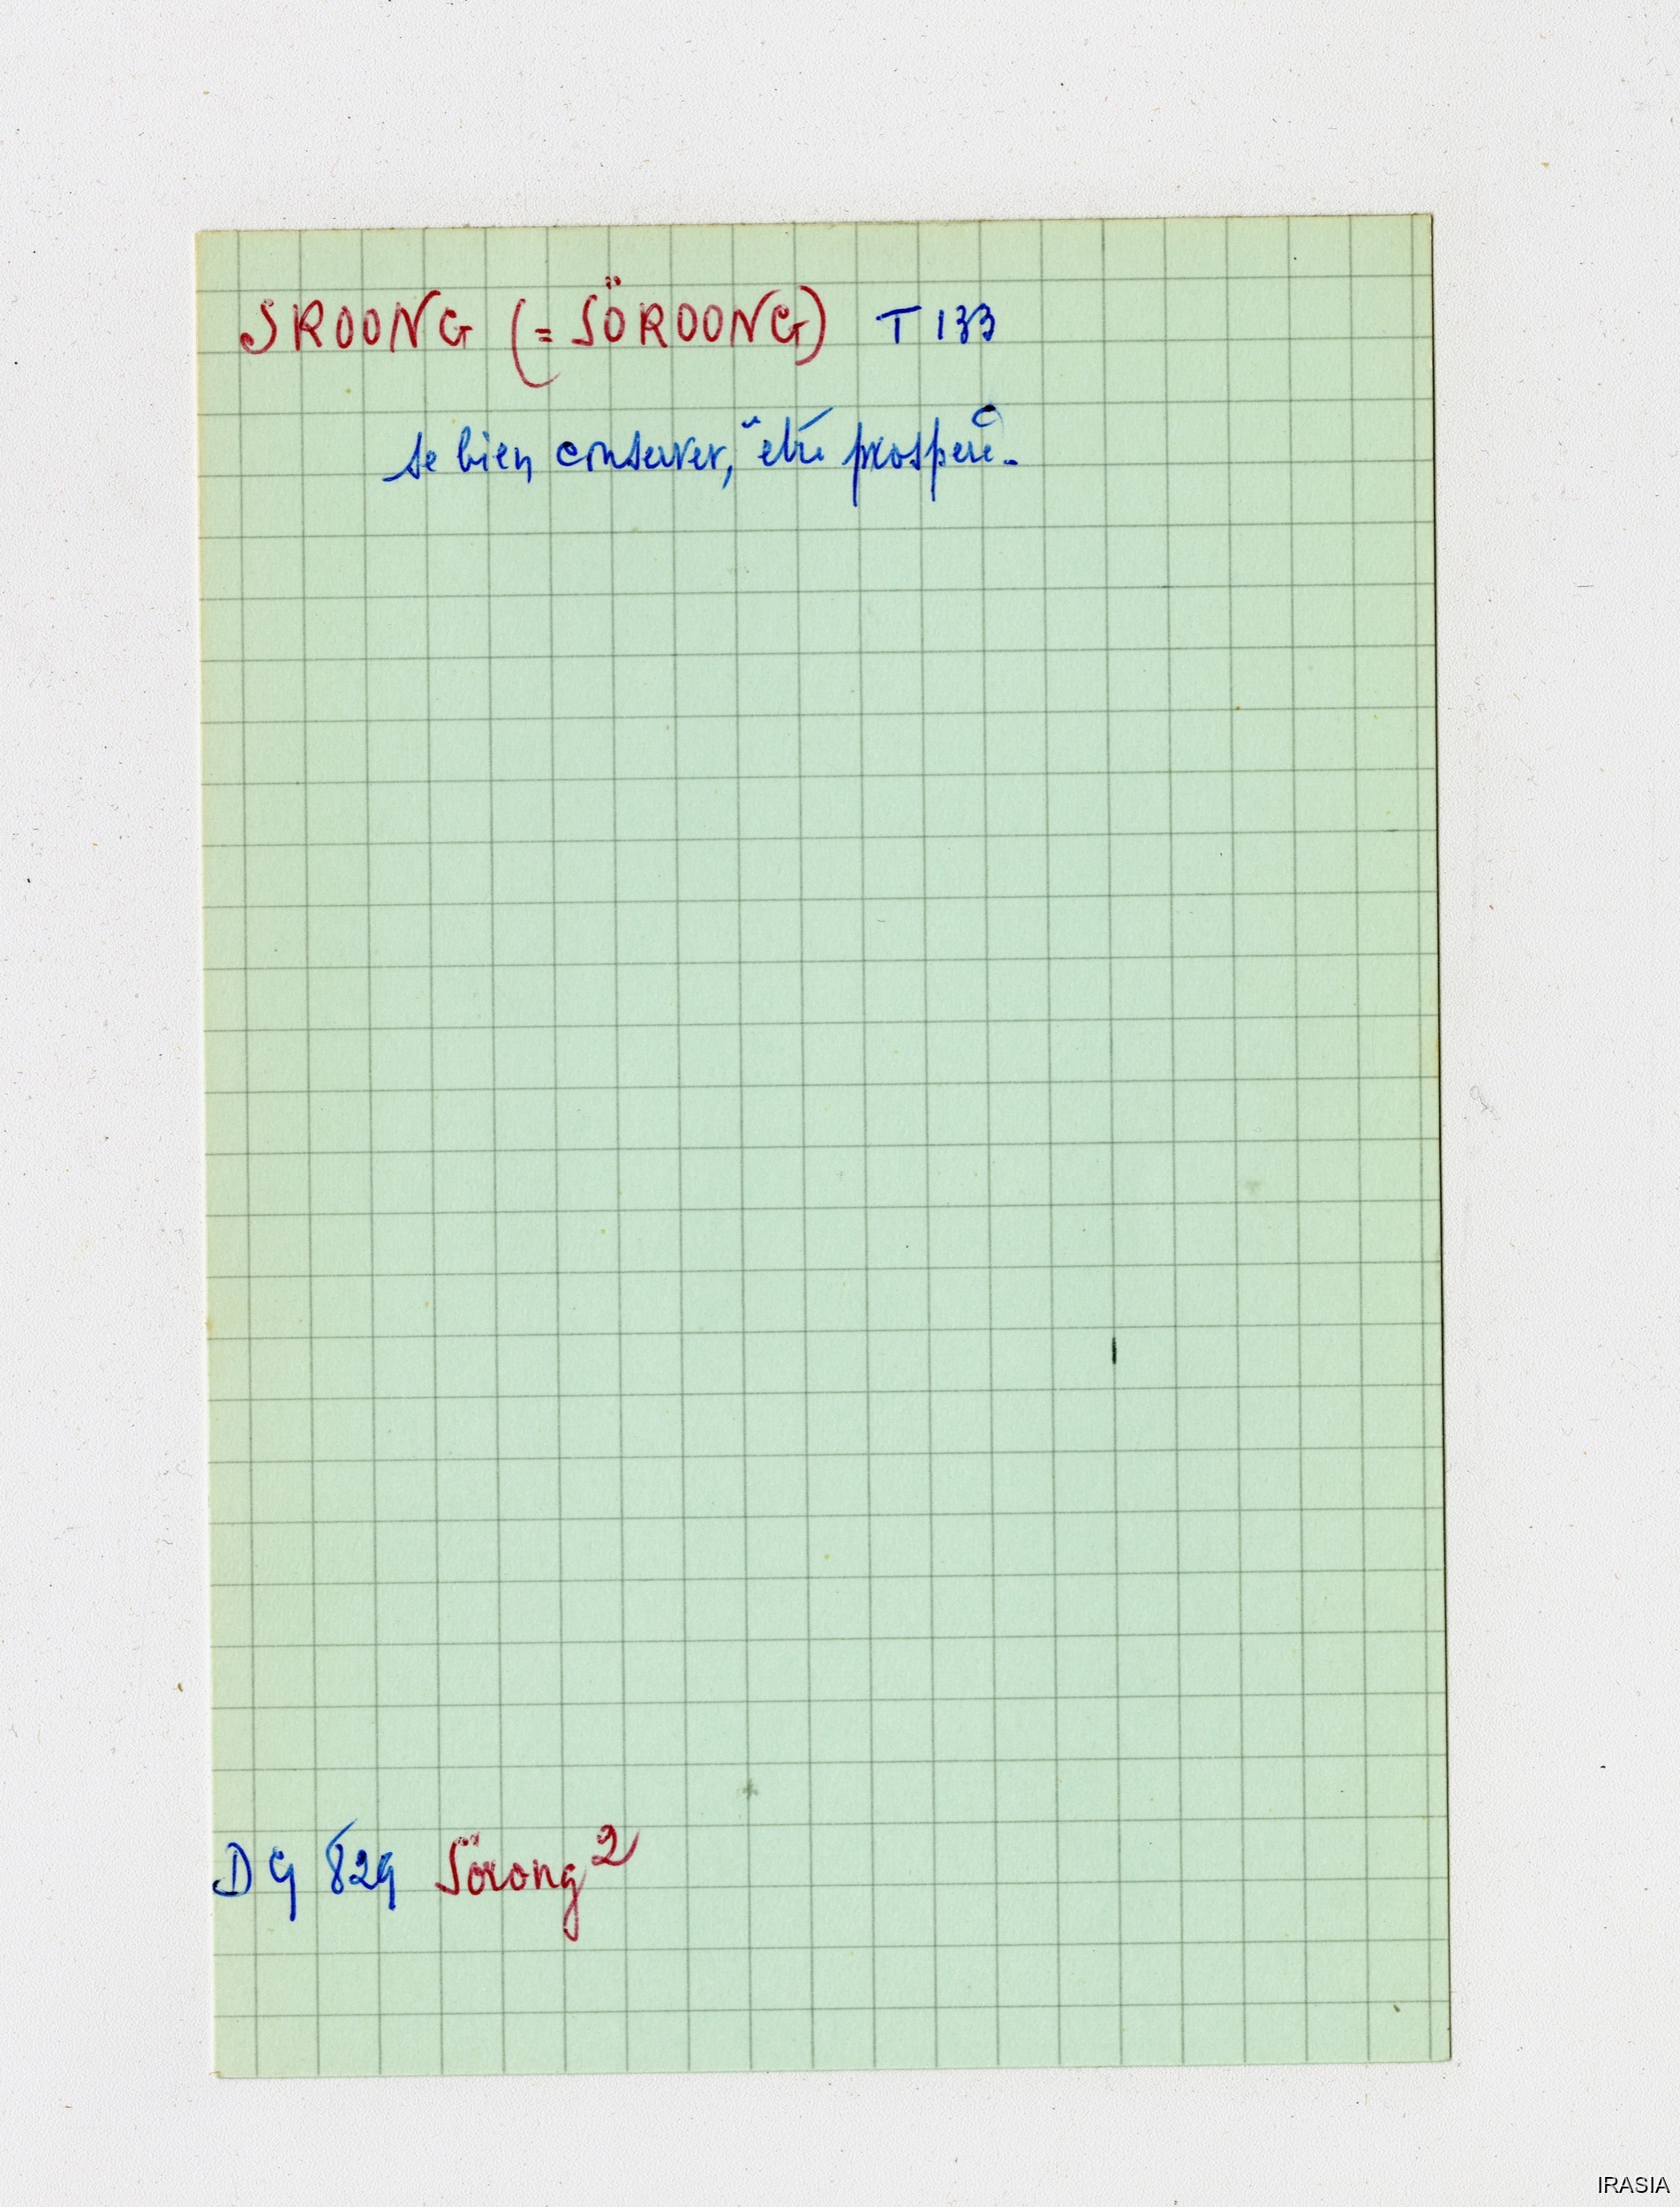 SROONG (= SÖROONG) T 133
se bien conserver, être prospère.
DG 829 Sörong²
IRASIA